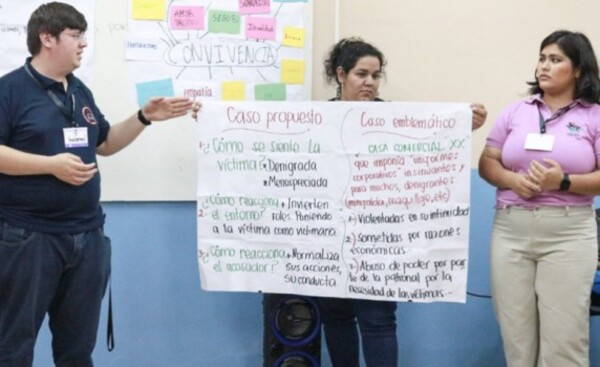 AMA
SEGURO
CONVIVENCIA
empatía
Caso propuesto
¿Cómo se siente la
víctima? • Denigrada
• Menospreciada
¿Cómo reacciona
el entorno? • Invierten
roles poniendo
a la víctima como victimaria
¿Cómo reacciona
el acosador? • Normaliza
sus acciones,
su conducta
Caso emblemático
CASA COMERCIAL XX
que imponía "uniformes
corporativos" insinuantes y
para muchos, denigrantes
(minifalda, maquillaje, etc)
1) Violentadas en su intimidad
2) Sometidas por razones
económicas.
3) Abuso de poder por par
te de la patronal por la
necesidad de las víctimas.